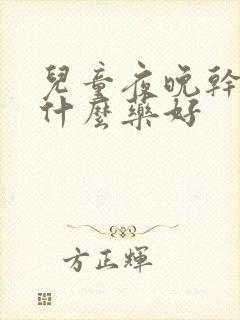 兒童夜晚幹
什麼藥好
方正輝